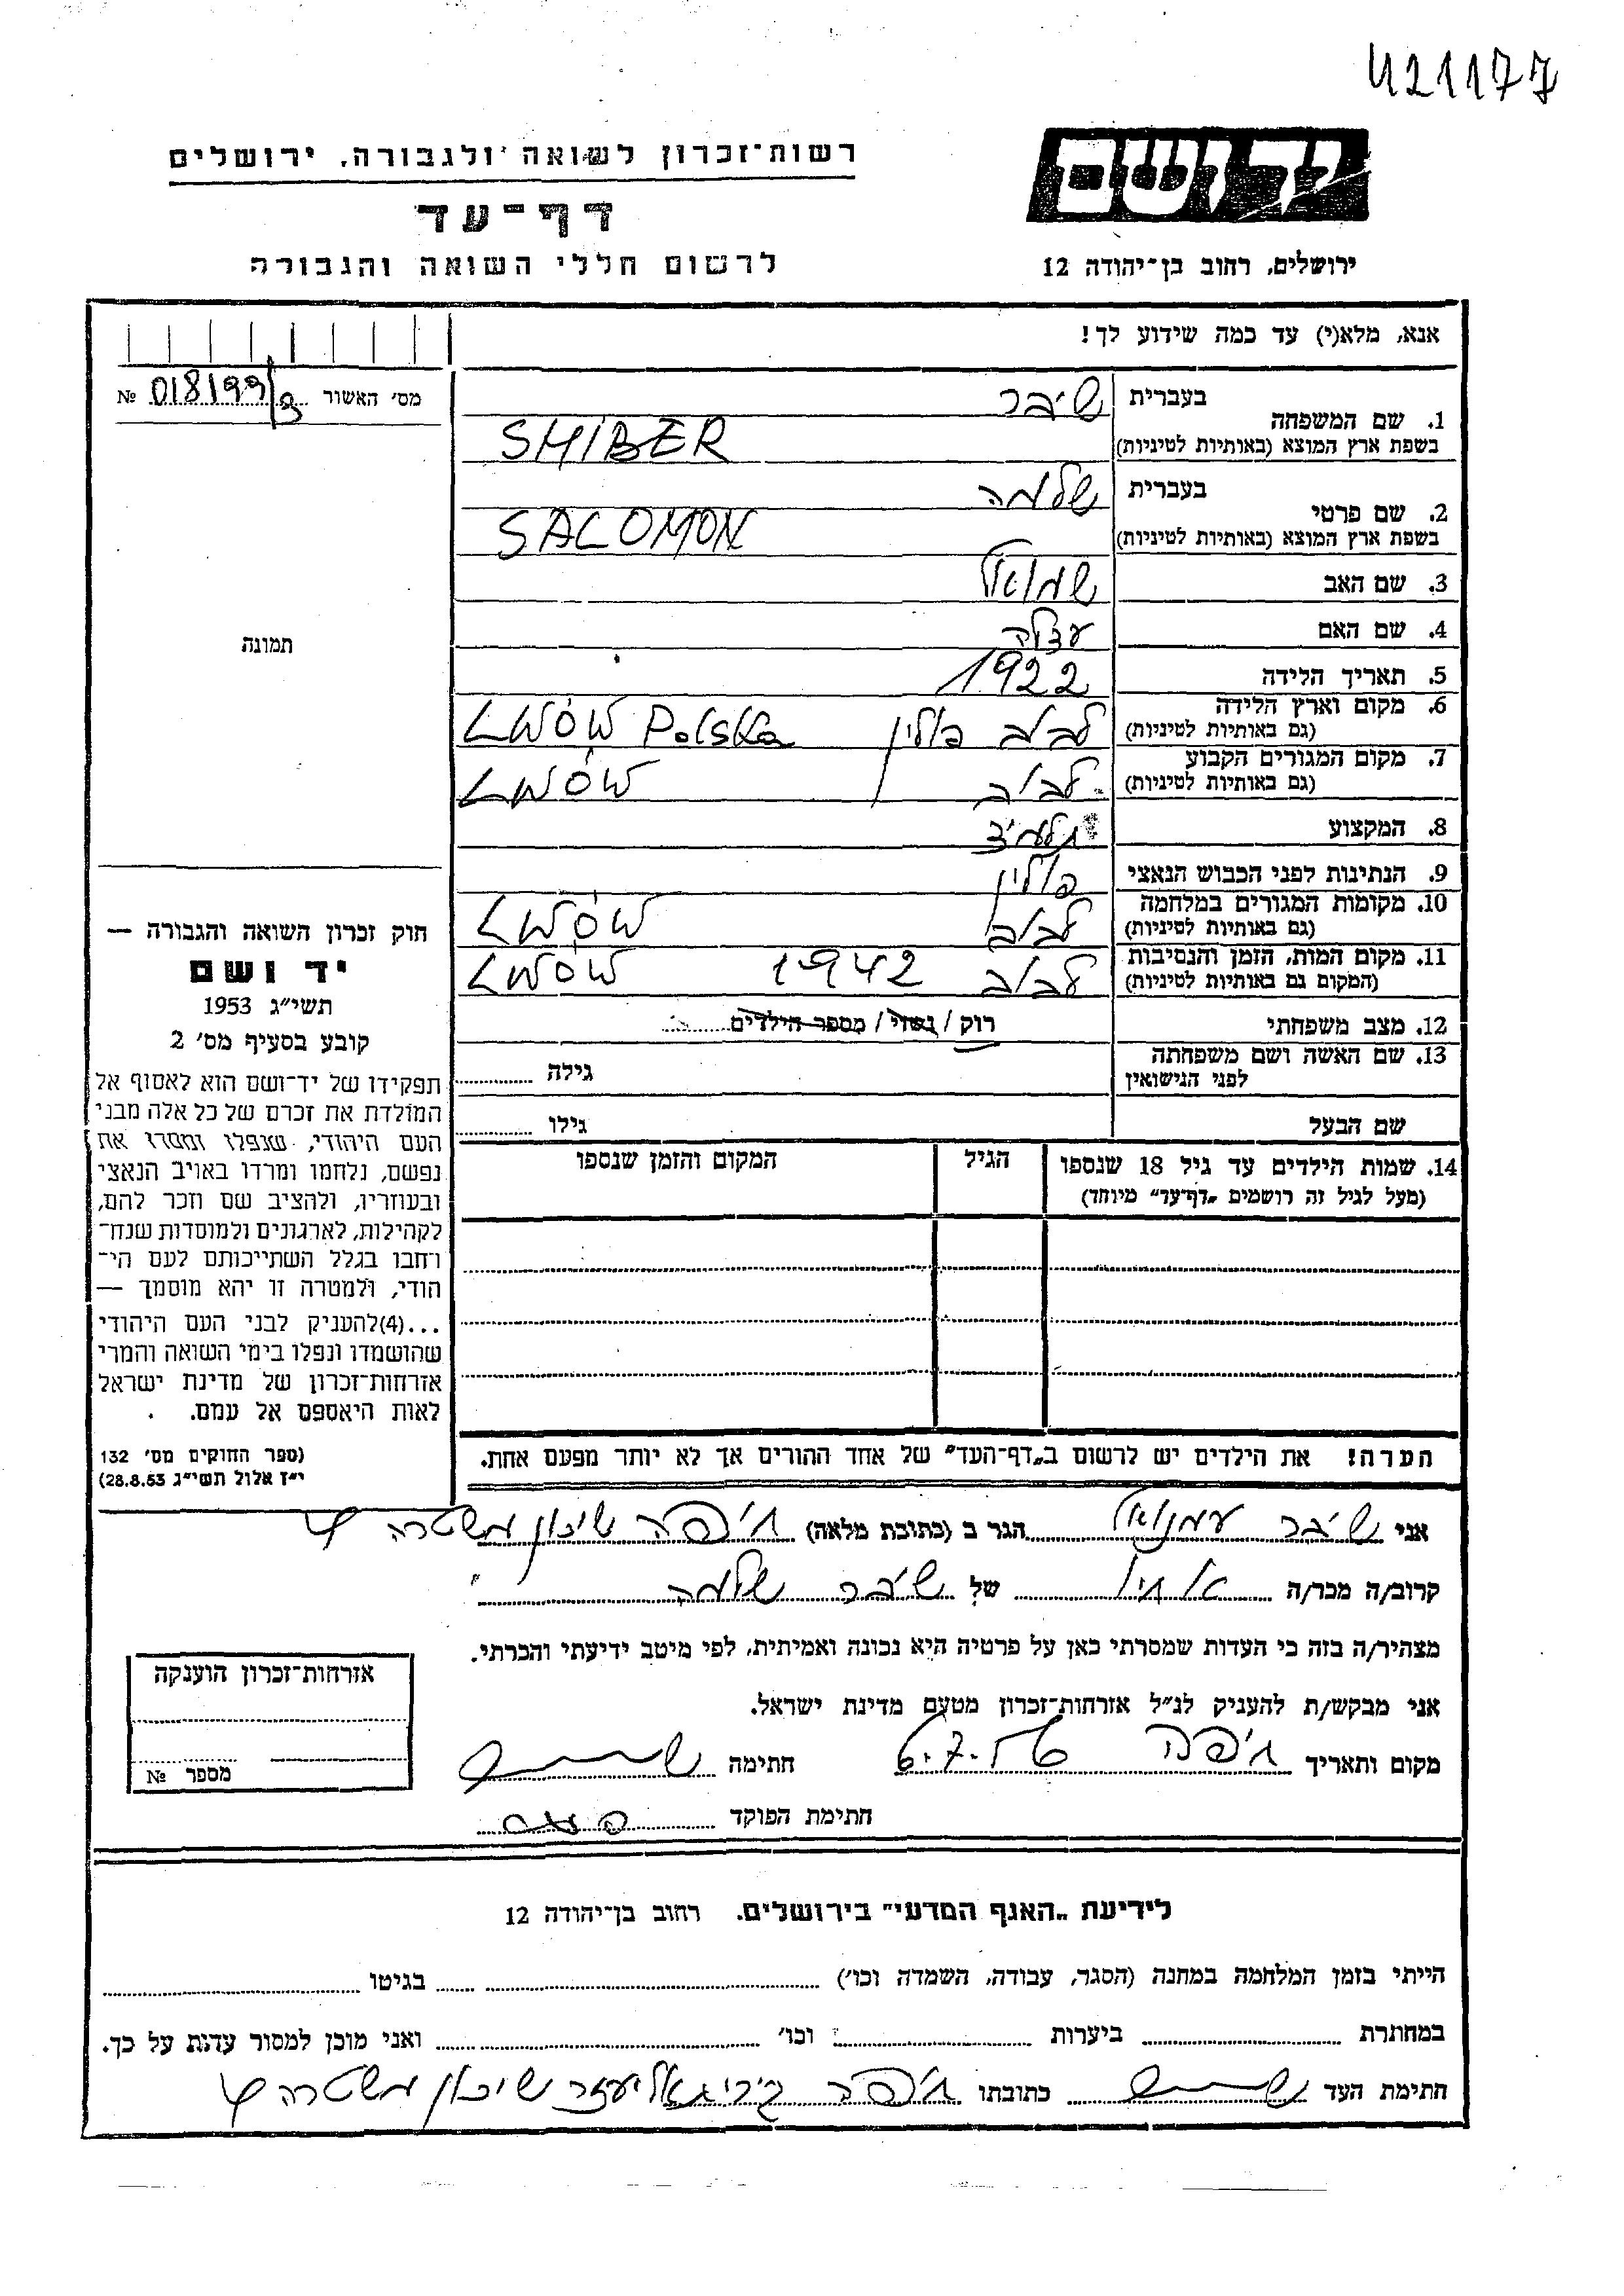 421177
יד ושם
רשות־זכרון לשואה ולגבורה, ירושלים
דף־עד
ירושלים, רחוב בן־יהודה 12
לרשום חללי השואה והגבורה
אנא, מלא(י) עד כמה שידוע לך!
מס׳ האשור 018199/3 №
תמונה
1. שם המשפחה
בעברית שיבר
בשפת ארץ המוצא (באותיות לטיניות) SHIBER
2. שם פרטי
בעברית שלמה
בשפת ארץ המוצא (באותיות לטיניות) SALOMON
3. שם האב שמואל
4. שם האם
5. תאריך הלידה 1922
6. מקום וארץ הלידה לבוב פולין LWÓW Polska
(גם באותיות לטיניות)
7. מקום המגורים הקבוע לבוב LWÓW
(גם באותיות לטיניות)
8. המקצוע תלמיד
9. הנתינות לפני הכבוש הנאצי פולין
10. מקומות המגורים במלחמה לבוב LWÓW
(גם באותיות לטיניות)
11. מקום המות, הזמן והנסיבות לבוב 1942 LWÓW
(המקום גם באותיות לטיניות)
12. מצב משפחתי רוק / נשוי / מספר הילדים
13. שם האשה ושם משפחתה גילה
לפני הנישואין
שם הבעל גילו
14. שמות הילדים עד גיל 18 שנספו הגיל המקום והזמן שנספו
(מעל לגיל זה רושמים „דף־עד״ מיוחד)
הערה! את הילדים יש לרשום ב„דף־העד״ של אחד ההורים אך לא יותר מפעם אחת.
חוק זכרון השואה והגבורה —
יד ושם
תשי״ג 1953
קובע בסעיף מס׳ 2
תפקידו של יד־ושם הוא לאסוף אל
המולדת את זכרם של כל אלה מבני
העם היהודי, שנפלו ומסרו את
נפשם, נלחמו ומרדו באויב הנאצי
ובעוזריו, ולהציב שם וזכר להם,
לקהילות, לארגונים ולמוסדות שנח־
רחבו בגלל השתייכותם לעם הי־
הודי, ולמטרה זו יהא מוסמך —
...(4)להעניק לבני העם היהודי
שהושמדו ונפלו בימי השואה והמרי
אזרחות־זכרון של מדינת ישראל
לאות היאספם אל עמם.
(ספר החוקים מס׳ 132
י״ז אלול תשי״ג 28.8.53)
אני שיבר עמנואל הגר ב (כתובת מלאה) חיפה שיכון משטרה 4
קרוב/ה מכר/ה אחיו של שיבר שלמה
מצהיר/ה בזה כי העדות שמסרתי כאן על פרטיה היא נכונה ואמיתית, לפי מיטב ידיעתי והכרתי.
אני מבקש/ת להעניק לנ״ל אזרחות־זכרון מטעם מדינת ישראל.
מקום ותאריך חיפה 6.7.56 חתימה
חתימת הפוקד
אזרחות־זכרון הוענקה
מספר №
לידיעת „האגף המדעי״ בירושלים. רחוב בן־יהודה 12
הייתי בזמן המלחמה במחנה (הסגר, עבודה, השמדה וכו׳) בגיטו
במחתרת ביערות וכו׳ ואני מוכן למסור עדות על כך.
חתימת העד כתובתו חיפה קרית אליעזר שיכון משטרה 4